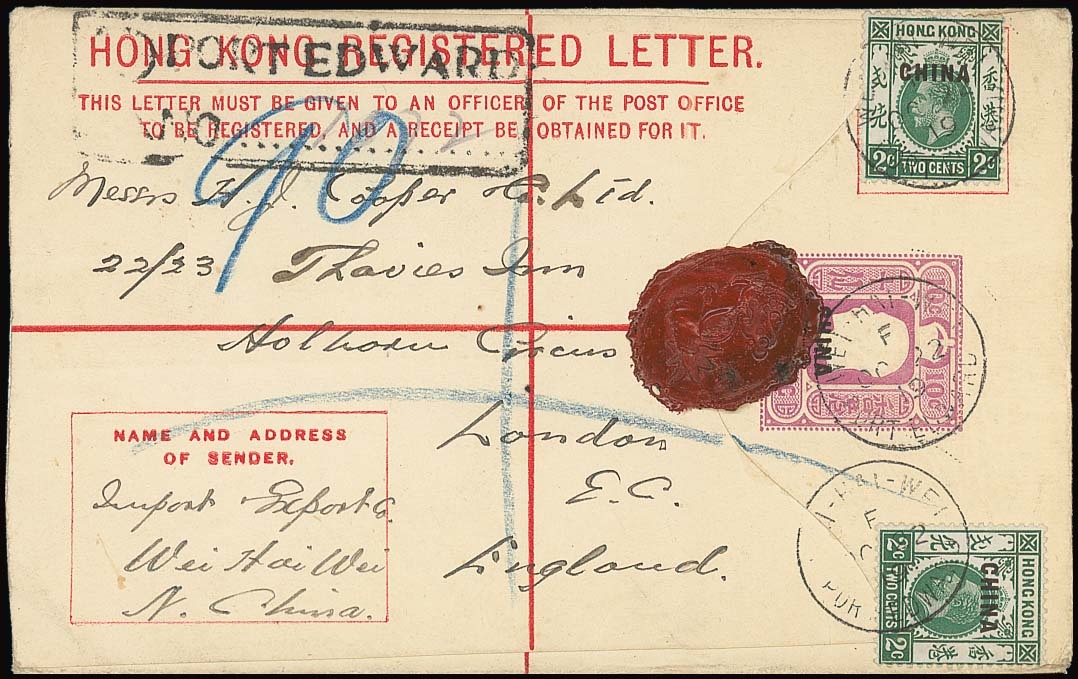 HONG KONG REGISTERED LETTER.
PORT EDWARD
THIS LETTER MUST BE GIVEN TO AN OFFICER OF THE POST OFFICE
TO BE REGISTERED, AND A RECEIPT BE OBTAINED FOR IT.
NO
90
Messrs H. J. Cooper & Co. Ltd.
22/23 Thavies Inn
Holborn Circus
London
E.C.
England.
NAME AND ADDRESS
OF SENDER.
Import Export Co.
Wei Hai Wei
N. China.
HONG KONG
CHINA
香港
2c TWO CENTS 2c
CHINA
10c 10c
WEI-HAI-W
F
OC 22
19
PORT EDWARD
I-HAI-WEI
F
2
POR
HONG KONG
CHINA
香港
2c TWO CENTS 2c